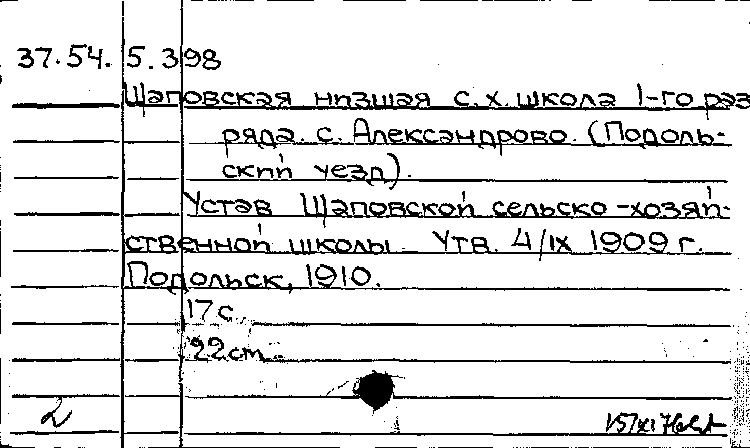 37.54. 5.398
Щаповская низшая с.х. школа I-го раз
ряда. с. Александрово. (Подоль-
ский уезд).
Устав Щаповской сельско-хозяй-
ственной школы. Утв. 4/IX 1909 г.
Подольск, 1910.
17 с.
22 cm.
2